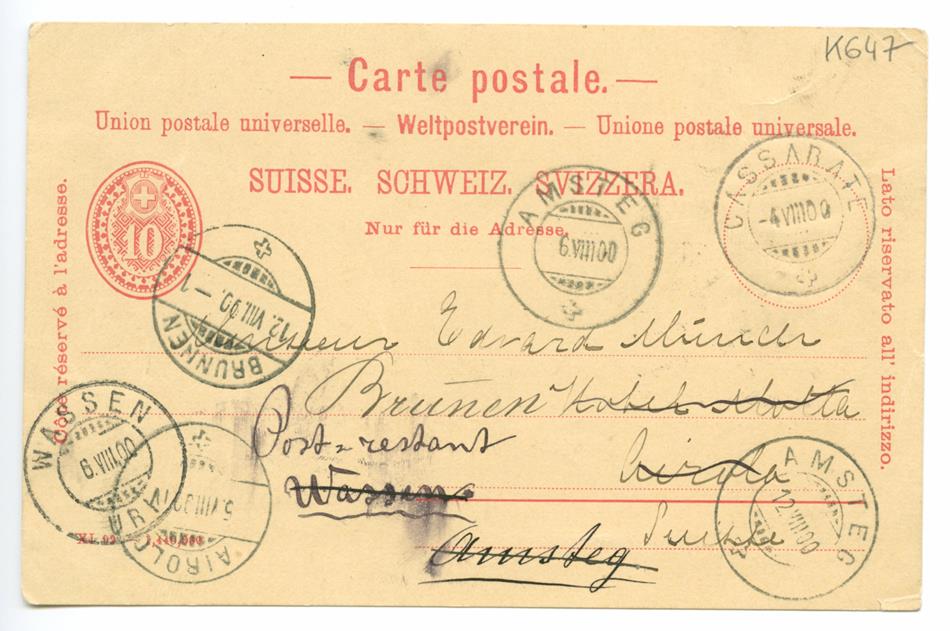 K647
— Carte postale. —
Union postale universelle. — Weltpostverein. — Unione postale universale.
SUISSE. SCHWEIZ. SVIZZERA.
Nur für die Adresse.
Côté réservé à l'adresse.
Lato riservato all' indirizzo.
10
CASSARATE
-4 VIII 00
AMSTEG
6.VIII 00
BRUNNEN
12. VIII. 00. — 1
Monsieur Edvard Münch
Brunen Hotel Motta
Post=restant
Airolo
Wassen.
Suisse
Amsteg
WASSEN
6.VIII 00
AIROLO
URI
AMSTEG
12 VIII 00